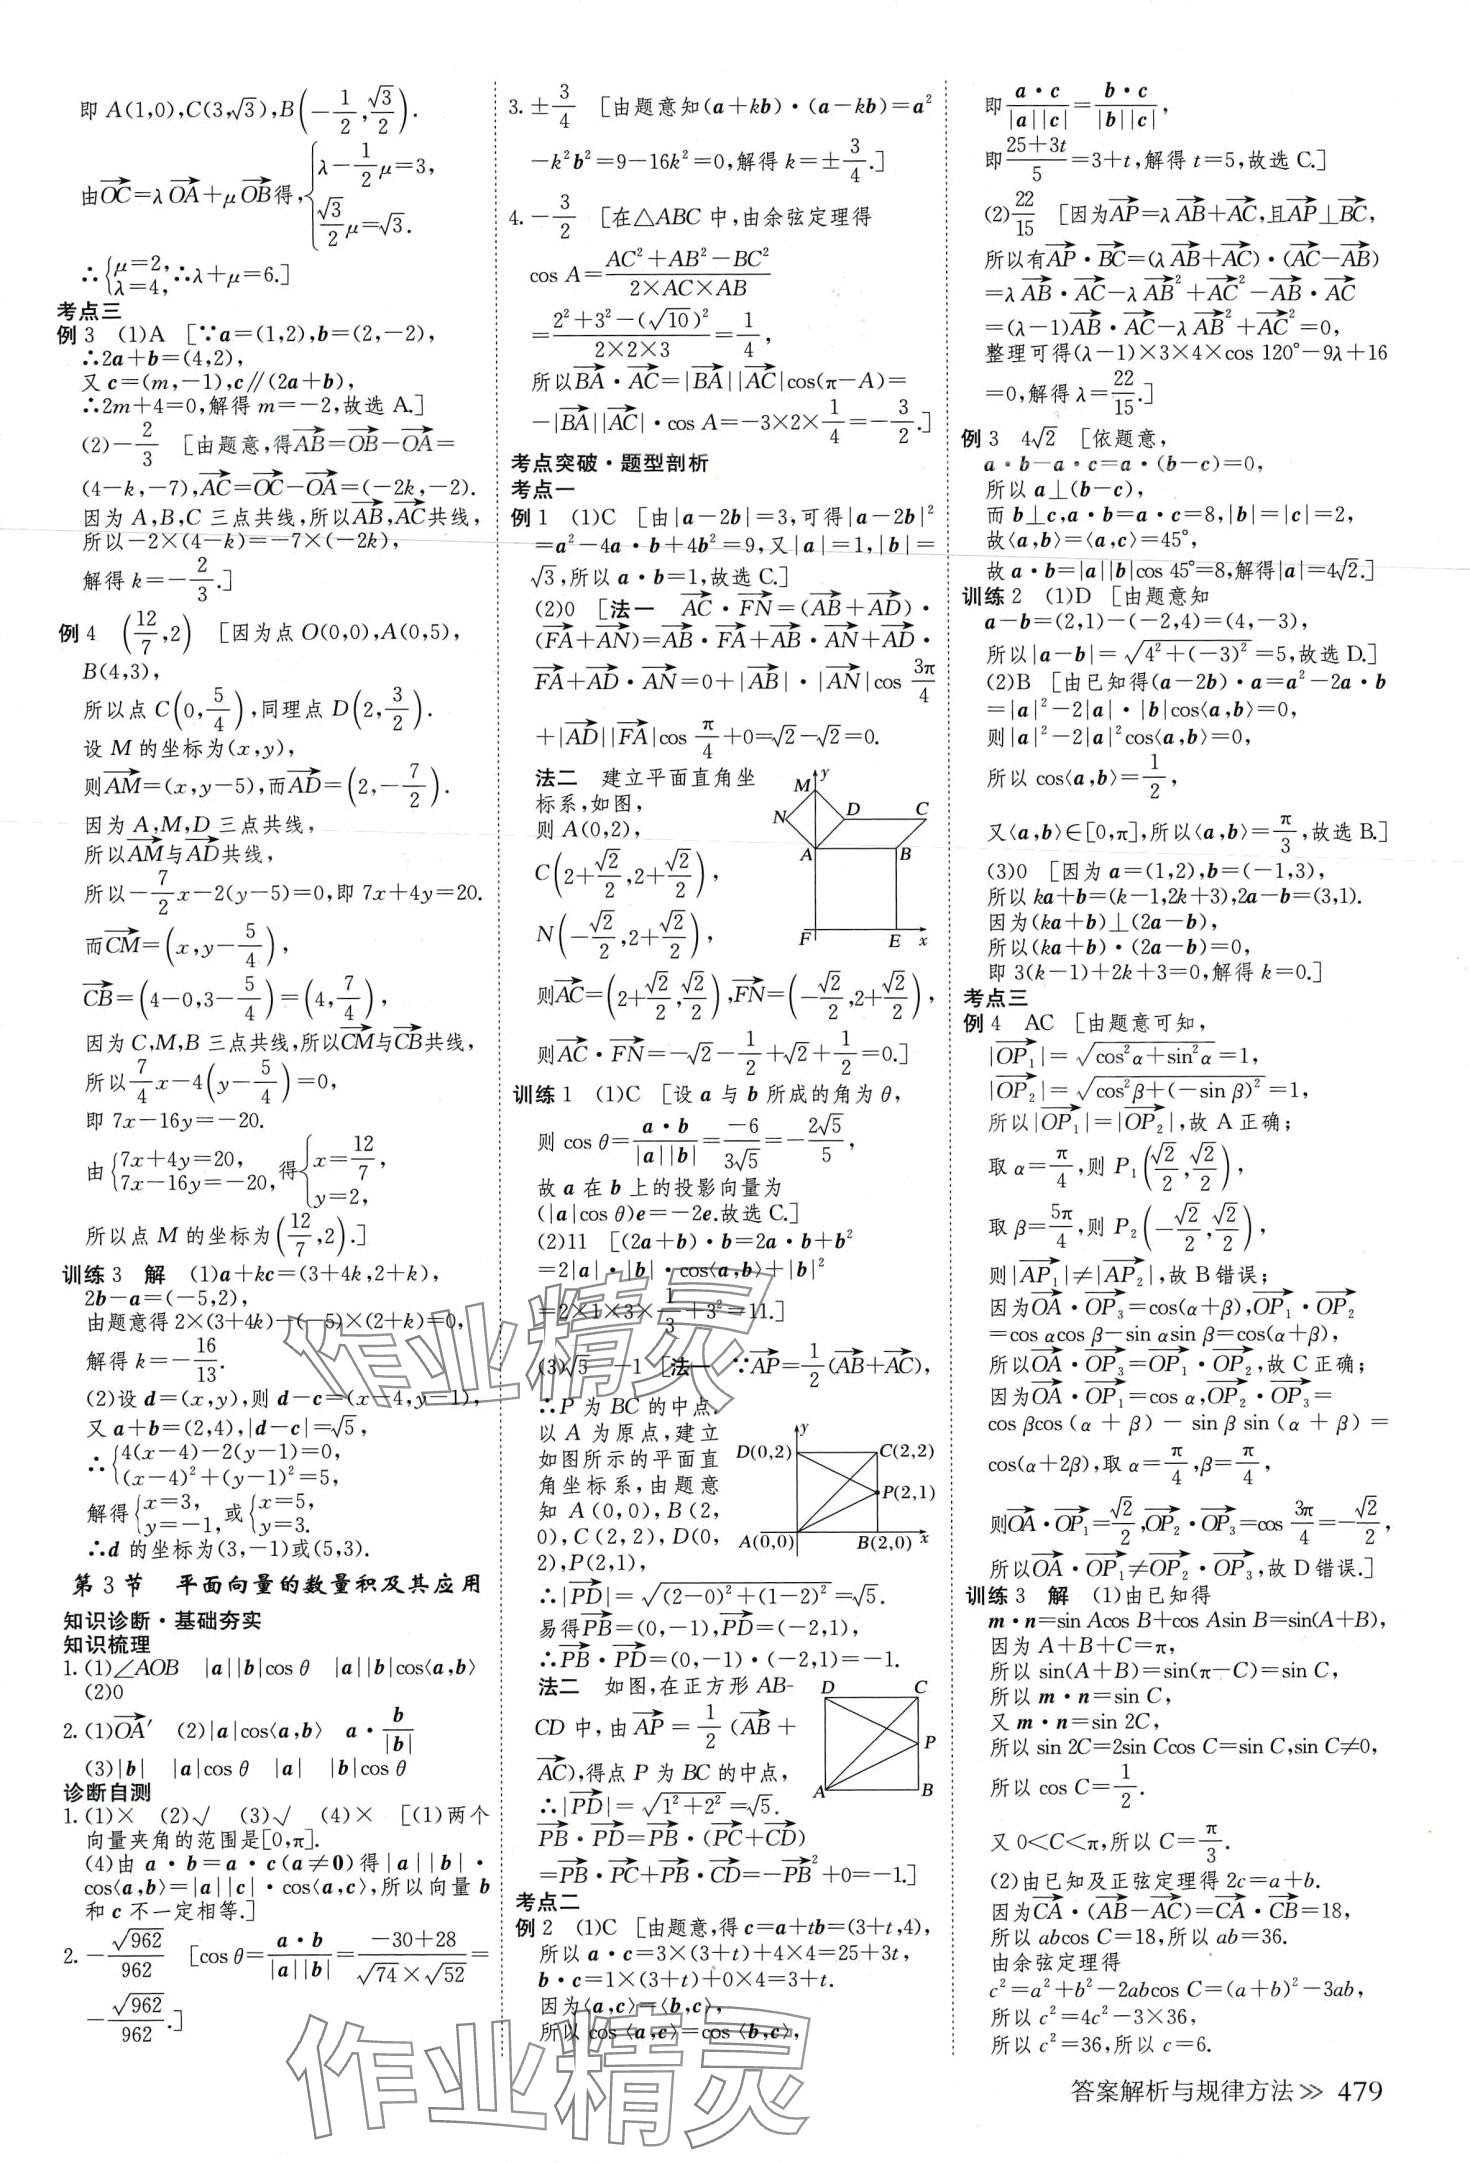 即 A(1,0),C(3,√3),B(-1/2,√3/2).
由OC→=λOA→+μOB→得,{λ-1/2μ=3, √3/2μ=√3.
∴{μ=2, λ=4,∴λ+μ=6.]
考点三
例 3 (1)A [∵a=(1,2),b=(2,-2),
∴2a+b=(4,2),
又 c=(m,-1),c∥(2a+b),
∴2m+4=0,解得 m=-2,故选 A.]
(2)-2/3 [由题意,得AB→=OB→-OA→=
(4-k,-7),AC→=OC→-OA→=(-2k,-2).
因为 A,B,C 三点共线,所以AB→,AC→共线,
所以-2×(4-k)=-7×(-2k),
解得 k=-2/3.]
例 4 (12/7,2) [因为点 O(0,0),A(0,5),
B(4,3),
所以点 C(0,5/4),同理点 D(2,3/2).
设 M 的坐标为(x,y),
则AM→=(x,y-5),而AD→=(2,-7/2).
因为 A,M,D 三点共线,
所以AM→与AD→共线,
所以-7/2x-2(y-5)=0,即 7x+4y=20.
而CM→=(x,y-5/4),
CB→=(4-0,3-5/4)=(4,7/4),
因为 C,M,B 三点共线,所以CM→与CB→共线,
所以7/4x-4(y-5/4)=0,
即 7x-16y=-20.
由{7x+4y=20, 7x-16y=-20,得{x=12/7, y=2,
所以点 M 的坐标为(12/7,2).]
训练 3 解 (1)a+kc=(3+4k,2+k),
2b-a=(-5,2),
由题意得 2×(3+4k)-(-5)×(2+k)=0,
解得 k=-16/13.
(2)设 d=(x,y),则 d-c=(x-4,y-1),
又 a+b=(2,4),|d-c|=√5,
∴{4(x-4)-2(y-1)=0, (x-4)²+(y-1)²=5,
解得{x=3, y=-1,或{x=5, y=3.
∴d 的坐标为(3,-1)或(5,3).
第 3 节 平面向量的数量积及其应用
知识诊断·基础夯实
知识梳理
1.(1)∠AOB |a||b|cos θ |a||b|cos⟨a,b⟩
(2)0
2.(1)OA′→ (2)|a|cos⟨a,b⟩ a·b/|b|
(3)|b| |a|cos θ |a| |b|cos θ
诊断自测
1.(1)× (2)√ (3)√ (4)× [(1)两个
向量夹角的范围是[0,π].
(4)由 a·b=a·c(a≠0)得|a||b|·
cos⟨a,b⟩=|a||c|·cos⟨a,c⟩,所以向量 b
和 c 不一定相等.]
2.-√962/962 [cos θ=a·b/|a||b|=(-30+28)/(√74×√52)=
-√962/962.]
3.±3/4 [由题意知(a+kb)·(a-kb)=a²
-k²b²=9-16k²=0,解得 k=±3/4.]
4.-3/2 [在△ABC 中,由余弦定理得
cos A=(AC²+AB²-BC²)/(2×AC×AB)
=(2²+3²-(√10)²)/(2×2×3)=1/4,
所以BA→·AC→=|BA→||AC→|cos(π-A)=
-|BA→||AC→|·cos A=-3×2×1/4=-3/2.]
考点突破·题型剖析
考点一
例 1 (1)C [由|a-2b|=3,可得|a-2b|²
=a²-4a·b+4b²=9,又|a|=1,|b|=
√3,所以 a·b=1,故选 C.]
(2)0 [法一 AC→·FN→=(AB→+AD→)·
(FA→+AN→)=AB→·FA→+AB→·AN→+AD→·
FA→+AD→·AN→=0+|AB→|·|AN→|cos 3π/4
+|AD→||FA→|cos π/4+0=√2-√2=0.
法二 建立平面直角坐
标系,如图,
则 A(0,2),
C(2+√2/2,2+√2/2),
N(-√2/2,2+√2/2),
M y
N D C
A B
F E x
则AC→=(2+√2/2,√2/2),FN→=(-√2/2,2+√2/2),
则AC→·FN→=-√2-1/2+√2+1/2=0.]
训练 1 (1)C [设 a 与 b 所成的角为 θ,
则 cos θ=a·b/|a||b|=-6/3√5=-2√5/5,
故 a 在 b 上的投影向量为
(|a|cos θ)e=-2e.故选 C.]
(2)11 [(2a+b)·b=2a·b+b²
=2|a|·|b|·cos⟨a,b⟩+|b|²
=2×1×3×1/3+3²=11.]
(3)√5 -1 [法一 ∵AP→=1/2(AB→+AC→),
∴P 为 BC 的中点.
以 A 为原点,建立
如图所示的平面直
角坐标系,由题意
知 A(0,0),B(2,
0),C(2,2),D(0,
2),P(2,1),
y
D(0,2) C(2,2)
P(2,1)
A(0,0) B(2,0) x
∴|PD→|=√((2-0)²+(1-2)²)=√5.
易得PB→=(0,-1),PD→=(-2,1),
∴PB→·PD→=(0,-1)·(-2,1)=-1.
法二 如图,在正方形 AB-
CD 中,由AP→=1/2(AB→+
AC→),得点 P 为 BC 的中点,
D C
P
A B
∴|PD→|=√(1²+2²)=√5.
PB→·PD→=PB→·(PC→+CD→)
=PB→·PC→+PB→·CD→=-PB→²+0=-1.]
考点二
例 2 (1)C [由题意,得 c=a+tb=(3+t,4),
所以 a·c=3×(3+t)+4×4=25+3t,
b·c=1×(3+t)+0×4=3+t.
因为⟨a,c⟩=⟨b,c⟩,
所以 cos⟨a,c⟩=cos⟨b,c⟩,
即a·c/|a||c|=b·c/|b||c|,
即(25+3t)/5=3+t,解得 t=5,故选 C.]
(2)22/15 [因为AP→=λAB→+AC→,且AP→⊥BC→,
所以有AP→·BC→=(λAB→+AC→)·(AC→-AB→)
=λAB→·AC→-λAB→²+AC→²-AB→·AC→
=(λ-1)AB→·AC→-λAB→²+AC→²=0,
整理可得(λ-1)×3×4×cos 120°-9λ+16
=0,解得 λ=22/15.]
例 3 4√2 [依题意,
a·b-a·c=a·(b-c)=0,
所以 a⊥(b-c),
而 b⊥c,a·b=a·c=8,|b|=|c|=2,
故⟨a,b⟩=⟨a,c⟩=45°,
故 a·b=|a||b|cos 45°=8,解得|a|=4√2.]
训练 2 (1)D [由题意知
a-b=(2,1)-(-2,4)=(4,-3),
所以|a-b|=√(4²+(-3)²)=5,故选 D.]
(2)B [由已知得(a-2b)·a=a²-2a·b
=|a|²-2|a|·|b|cos⟨a,b⟩=0,
则|a|²-2|a|²cos⟨a,b⟩=0,
所以 cos⟨a,b⟩=1/2,
又⟨a,b⟩∈[0,π],所以⟨a,b⟩=π/3,故选 B.]
(3)0 [因为 a=(1,2),b=(-1,3),
所以 ka+b=(k-1,2k+3),2a-b=(3,1).
因为(ka+b)⊥(2a-b),
所以(ka+b)·(2a-b)=0,
即 3(k-1)+2k+3=0,解得 k=0.]
考点三
例 4 AC [由题意可知,
|OP₁→|=√(cos²α+sin²α)=1,
|OP₂→|=√(cos²β+(-sin β)²)=1,
所以|OP₁→|=|OP₂→|,故 A 正确;
取 α=π/4,则 P₁(√2/2,√2/2),
取 β=5π/4,则 P₂(-√2/2,√2/2),
则|AP₁→|≠|AP₂→|,故 B 错误;
因为OA→·OP₃→=cos(α+β),OP₁→·OP₂→
=cos αcos β-sin αsin β=cos(α+β),
所以OA→·OP₃→=OP₁→·OP₂→,故 C 正确;
因为OA→·OP₁→=cos α,OP₂→·OP₃→=
cos βcos(α+β)-sin βsin(α+β)=
cos(α+2β),取 α=π/4,β=π/4,
则OA→·OP₁→=√2/2,OP₂→·OP₃→=cos 3π/4=-√2/2,
所以OA→·OP₁→≠OP₂→·OP₃→,故 D 错误.]
训练 3 解 (1)由已知得
m·n=sin Acos B+cos Asin B=sin(A+B),
因为 A+B+C=π,
所以 sin(A+B)=sin(π-C)=sin C,
所以 m·n=sin C,
又 m·n=sin 2C,
所以 sin 2C=2sin Ccos C=sin C,sin C≠0,
所以 cos C=1/2.
又 0<C<π,所以 C=π/3.
(2)由已知及正弦定理得 2c=a+b.
因为CA→·(AB→-AC→)=CA→·CB→=18,
所以 abcos C=18,所以 ab=36.
由余弦定理得
c²=a²+b²-2abcos C=(a+b)²-3ab,
所以 c²=4c²-3×36,
所以 c²=36,所以 c=6.
答案解析与规律方法≫ 479
作业精灵
作业精灵